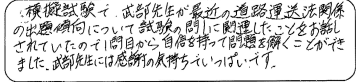 ・模擬試験で、武部先生が最近の道路運送法関係
の出題傾向について試験の問1に関連したことをお話し
されていたので1問目から自信を持って問題を解くことができ
ました。武部先生には感謝の気持ちでいっぱいです。